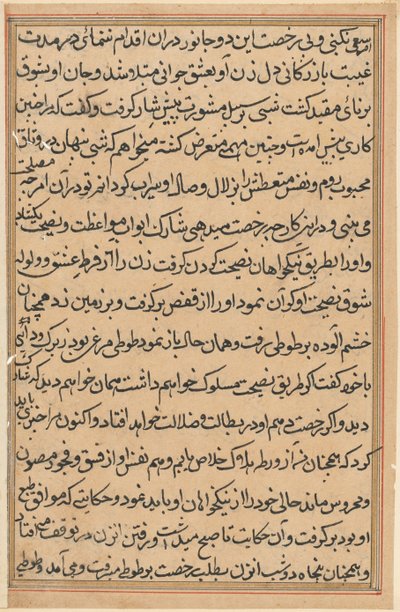 امری نکنی و بی رخصت این دو جانور دران اقدام ننمائی در مدت
غیبت بازرگانی دل زن او بعشق جوانی مبتلا شد و جان او بشوق
برنای مقید گشت شبی بر سبیل مشورت پیش شارک رفت و گفت که مرا چنین
کاری پیش آمده است و چنین مهمی متعرض گشته میخواهم که شبی پنهان در وثاق
محبوب روم و نفس متعطش را بزلال وصال او سیراب کردانم تو در آن امر چه مصلحت
می بینی و درین کار چه رخصت میدهی شارک ابواب مواعظت و نصیحت بگشاد
و او را بطریق نیکخواهان نصیحت کردن گرفت زن را از فرط عشق و ولوله
شوق نصیحت او گران نمود او را از قفص بر گرفت و بر زمین زد همچنان
خشم آلوده بر طوطی رفت و همان حال باز نمود طوطی مرغی بود زیرک و دانای
با خود گفت که اگر طریق نصیحت مسلوک خواهم داشت همان خواهم دید که شارک
دید و اگر رخصت دهم او در بطالت و ضلالت خواهد افتاد و اکنون مرا چیزی باید
کرد که همچنان من از ورطه هلاک خلاص یابم و هم نفس او از فسق و فجور مصون
و محروس ماند حالی خود را از نیکخواهان او باید نمود و حکایتی که موافق طبع
او بود بر گرفت و آن حکایت تا صبح میداشت و رفتن آن زن در توقف می افتاد
و همچنان هر شب آن زن بطلب رخصت بر طوطی میرفت و می آمد و طوطی